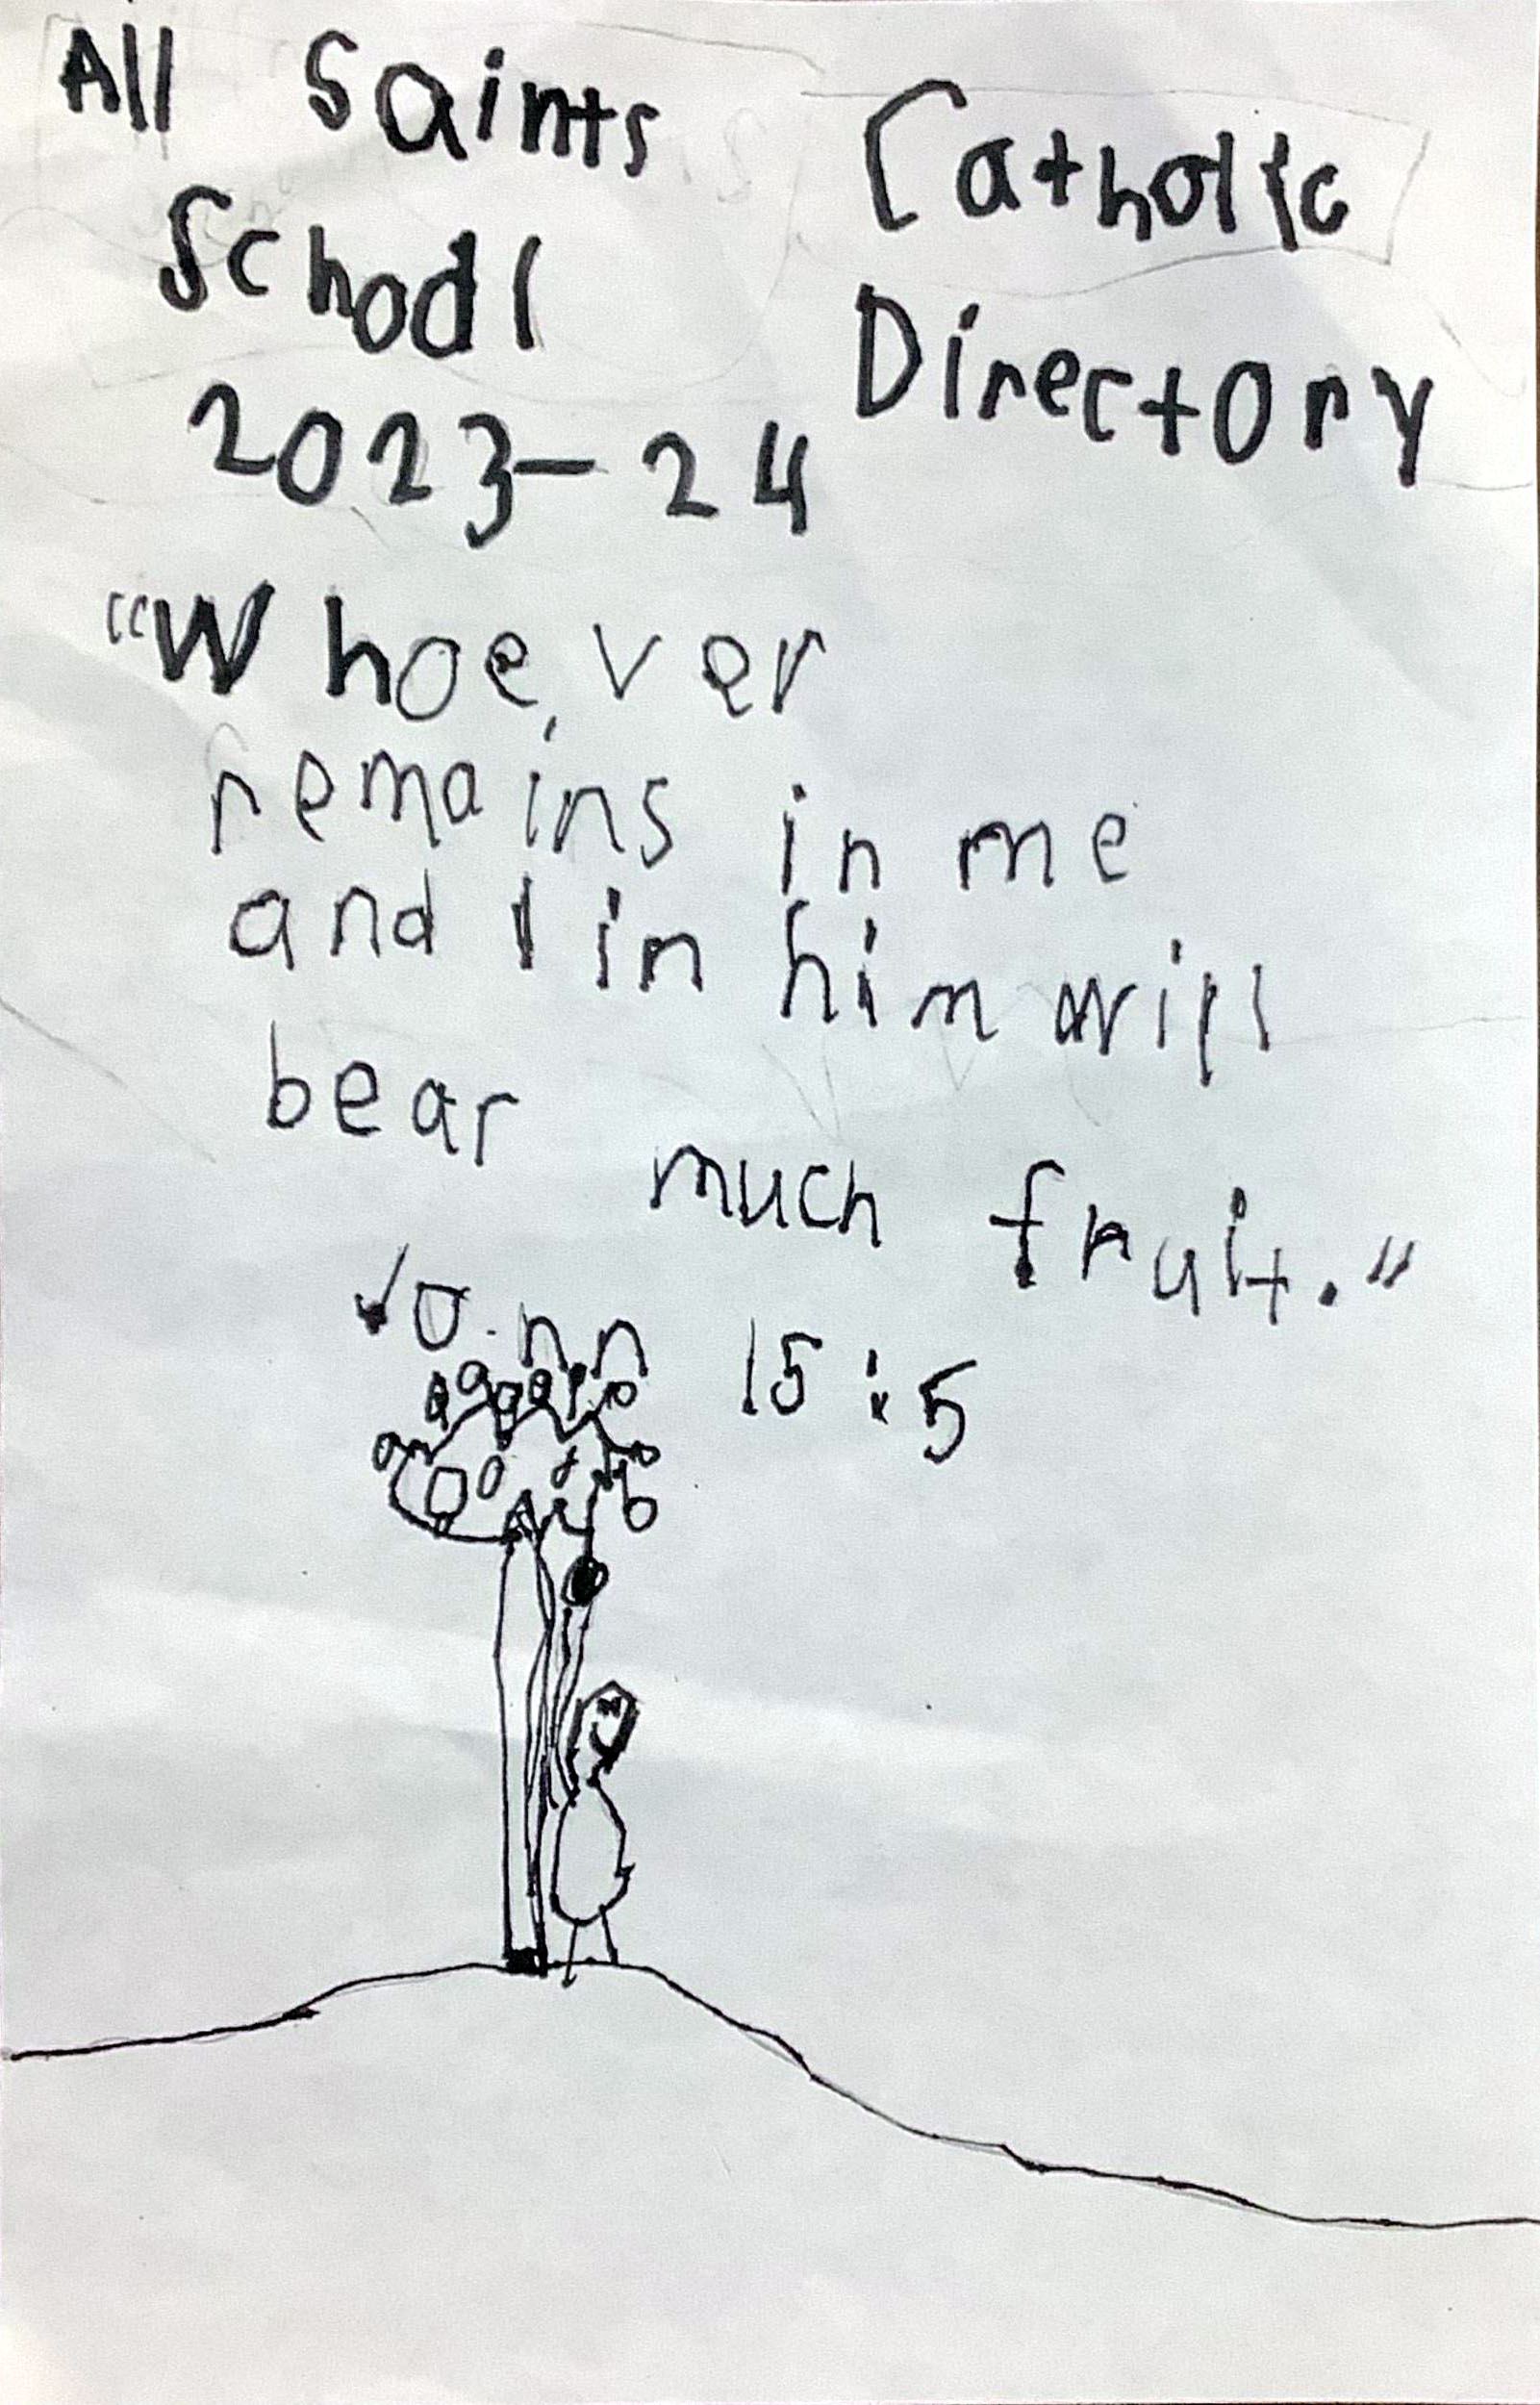 All Saints Catholic
School Directory
2023-24
"Whoever
remains in me
and I in him will
bear much fruit."
John 15:5